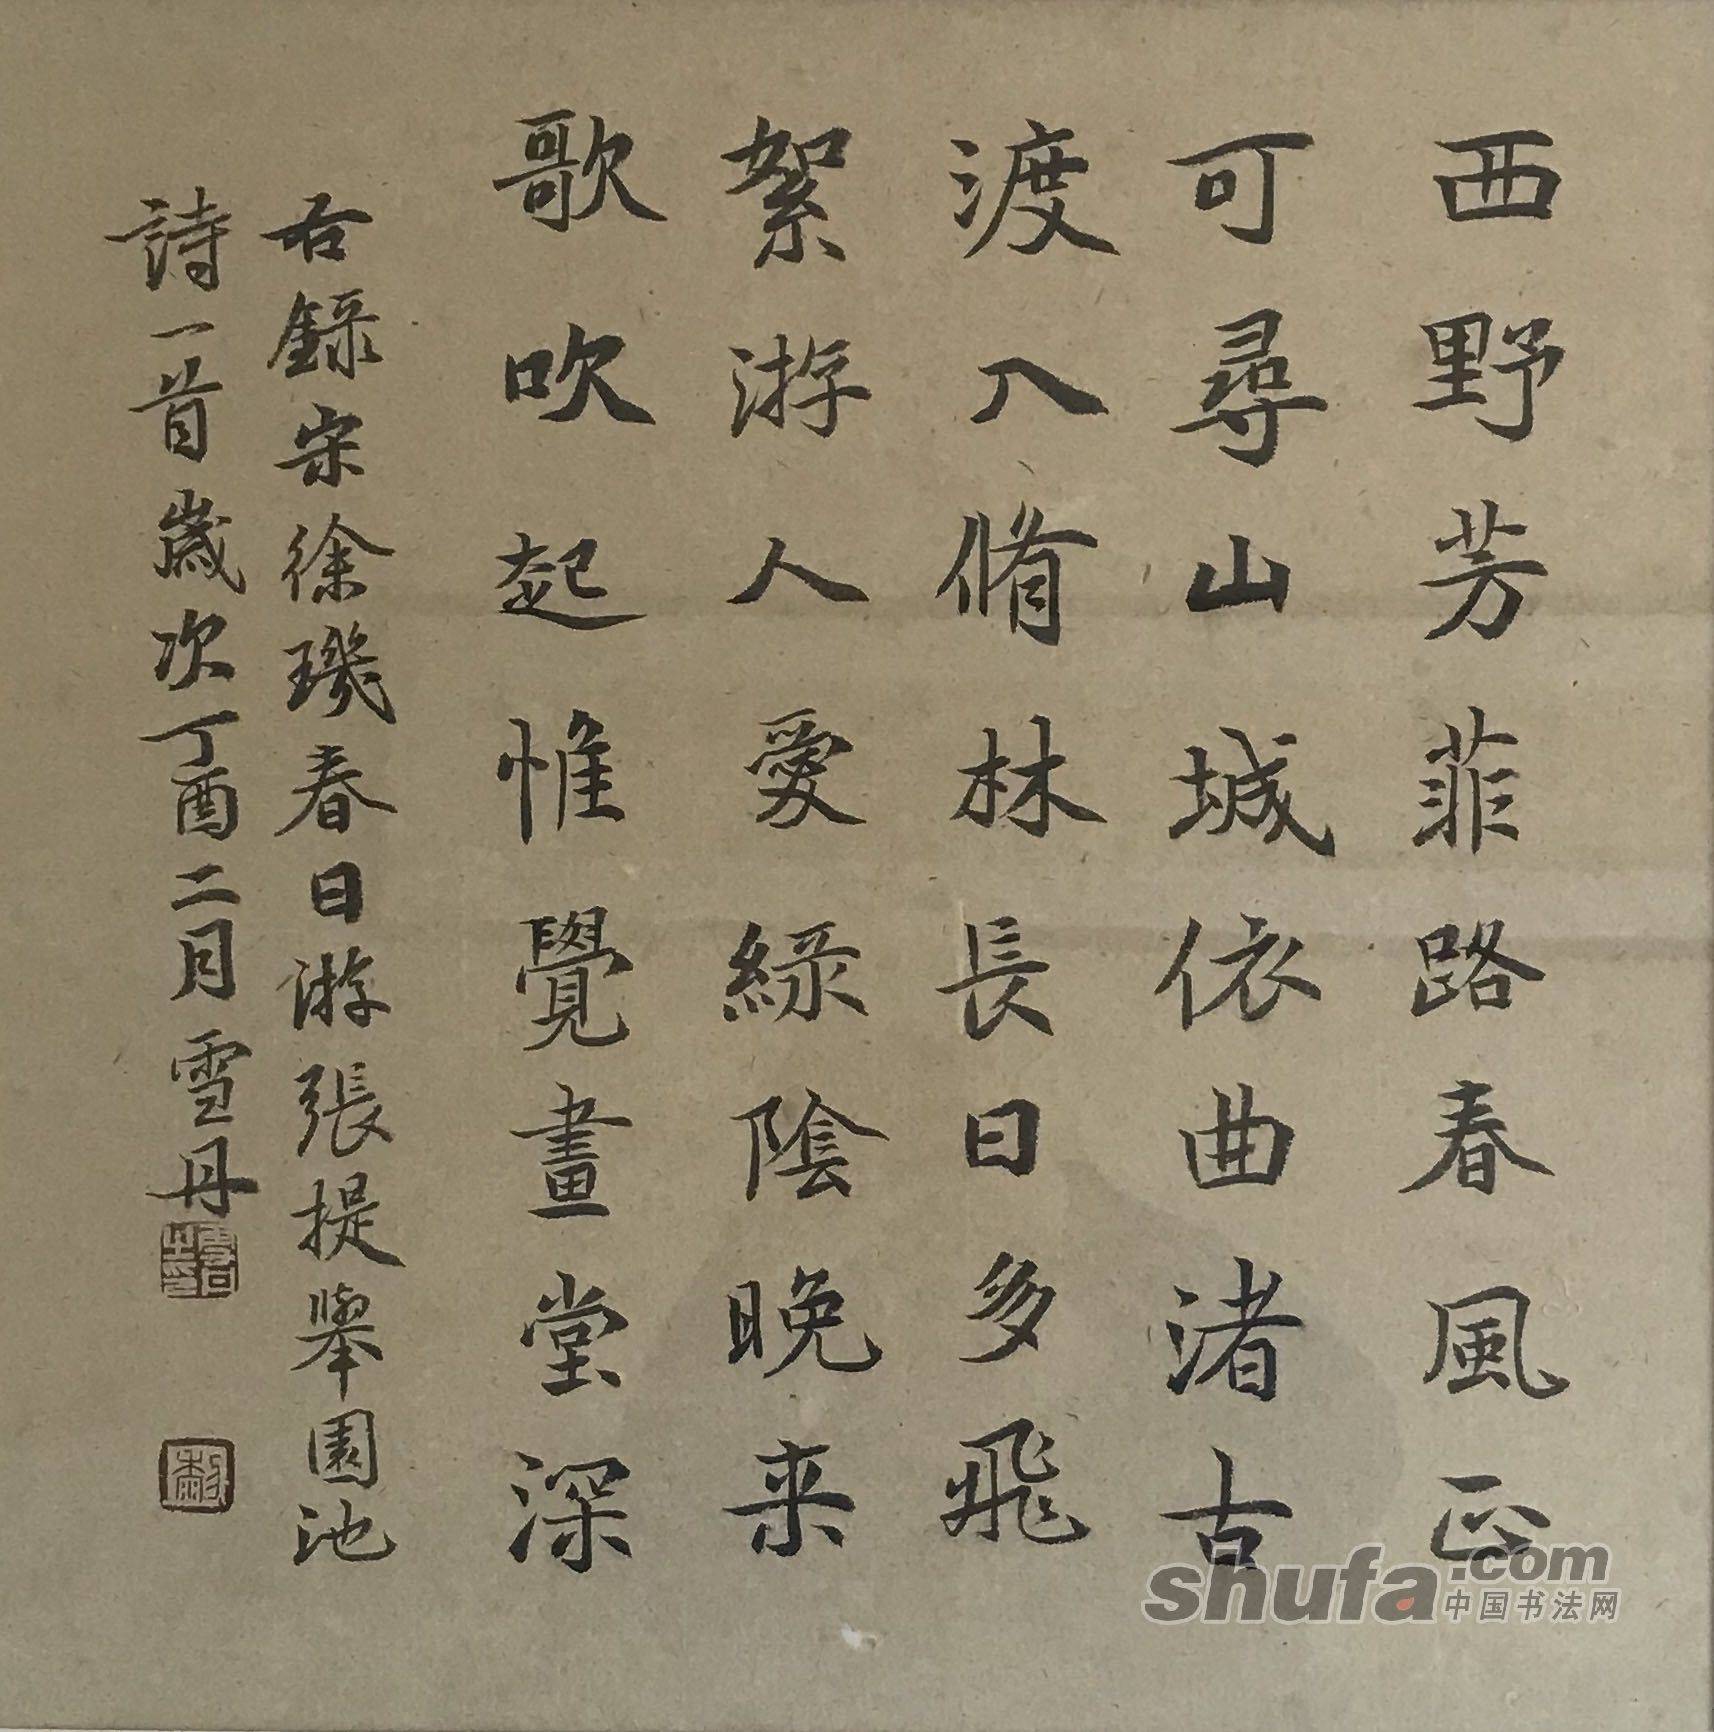 西野芳菲路春風正
可尋山城依曲渚古
渡入脩林長日多飛
絮游人愛綠陰晚来
歌吹起惟覺畫堂深
右錄宋徐璣春日游張提舉園池
詩一首歲次丁酉二月雪丹
shufa.com
中国书法网